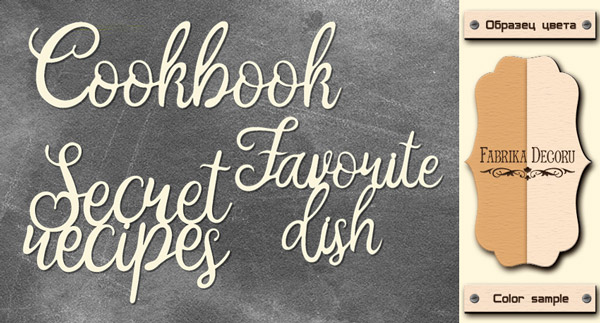 Cookbook
Favorite
dish
Secret
recipes
Образец цвета
FABRIKA DECORU
Color sample